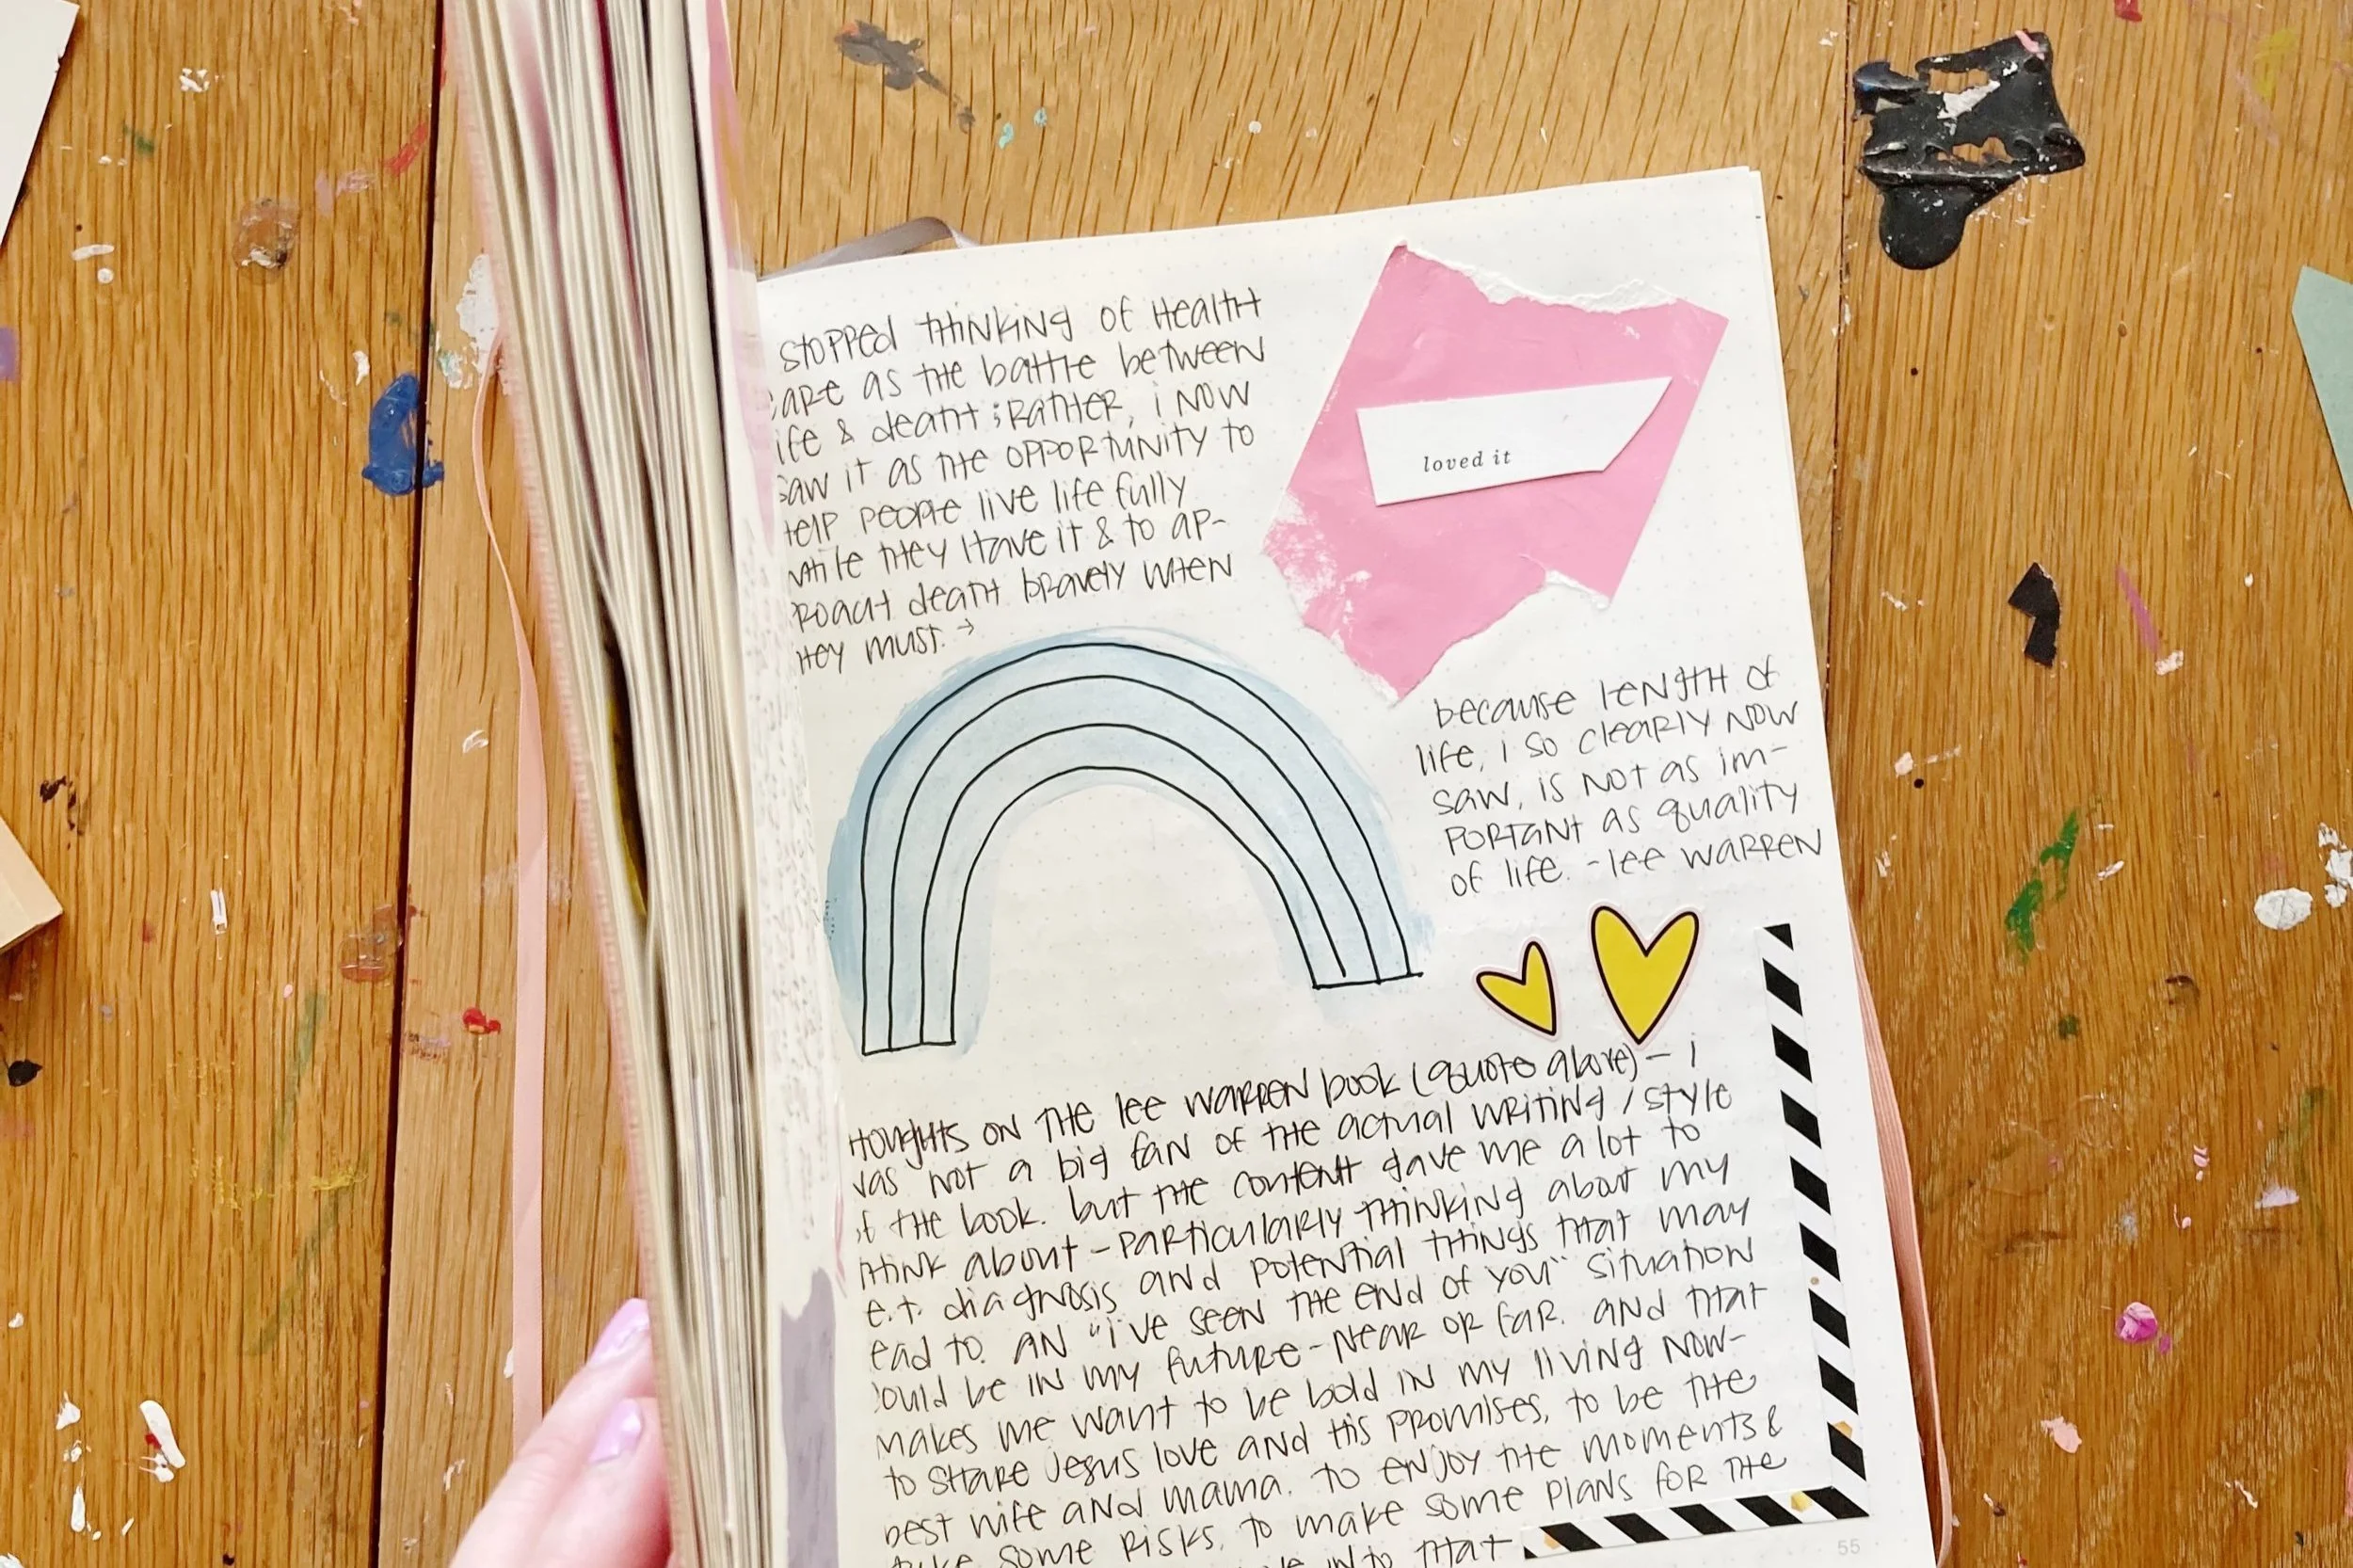 stopped thinking of health
care as the battle between
life & death; rather, i now
saw it as the opportunity to
help people live life fully
while they have it & to ap-
proach death bravely when
they must. →
loved it
because length of
life, i so clearly now
saw, is not as im-
portant as quality
of life. - lee warren
thoughts on the lee warren book (quote above) - i
was not a big fan of the actual writing / style
of the book. but the content gave me a lot to
think about - particularly thinking about my
e.t. diagnosis and potential things that may
lead to. an "i've seen the end of you" situation
could be in my future - near or far. and that
makes me want to be bold in my living now -
to share Jesus love and his promises, to be the
best wife and mama. to enjoy the moments &
take some risks. to make some plans for the
into that
55